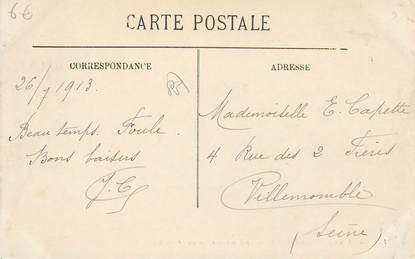 66
CARTE POSTALE
CORRESPONDANCE
ADRESSE
26/7 1913.
Beau temps. Foule.
Bons baisers
J.C
Mademoiselle E. Capette
4 Rue des 2 Frères
Villemomble
(Seine).